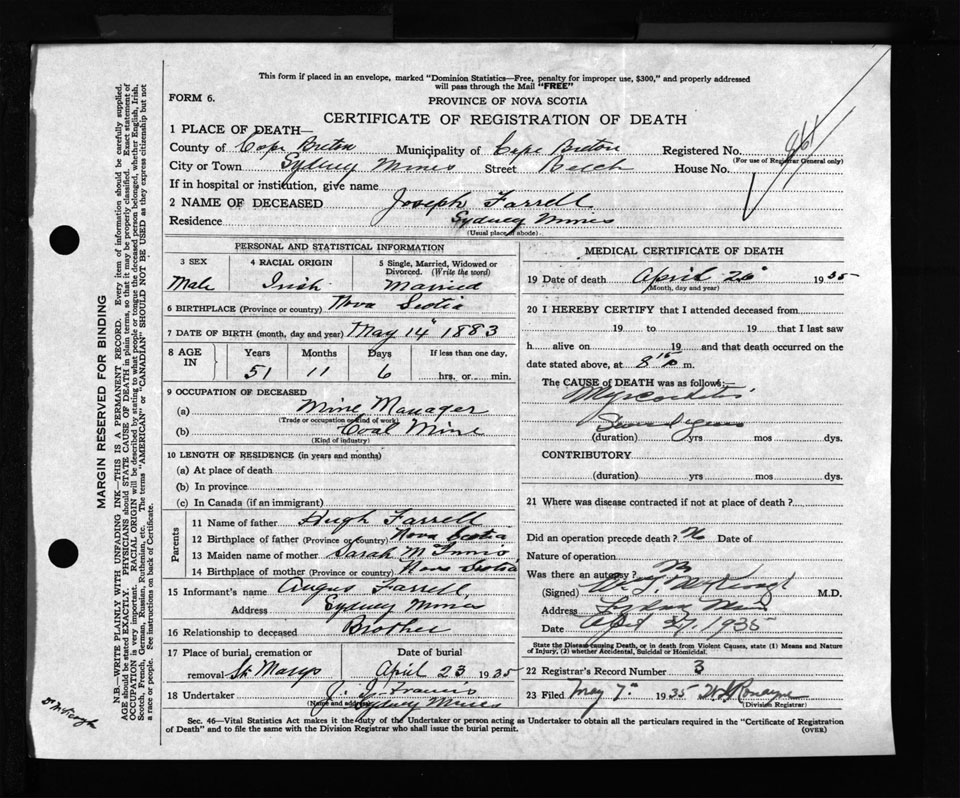 This form if placed in an envelope, marked "Dominion Statistics—Free, penalty for improper use, $300," and properly addressed
will pass through the Mail "FREE"
FORM 6.
PROVINCE OF NOVA SCOTIA
CERTIFICATE OF REGISTRATION OF DEATH
1 PLACE OF DEATH—
County of Cape Breton Municipality of Cape Breton Registered No.
(For use of Registrar General only)
City or Town Sydney Mines Street Beech House No.
If in hospital or institution, give name
2 NAME OF DECEASED Joseph Farrell
Residence Sydney Mines
(Usual place of abode)
PERSONAL AND STATISTICAL INFORMATION
3 SEX 4 RACIAL ORIGIN 5 Single, Married, Widowed or
Divorced. (Write the word)
Male Irish Married
6 BIRTHPLACE (Province or country) Nova Scotia
7 DATE OF BIRTH (month, day and year) May 14" 1883
8 AGE IN Years Months Days If less than one day,
51 11 6 hrs. or min.
9 OCCUPATION OF DECEASED
(a) Mine Manager
(Trade or occupation or kind of work)
(b) Coal Mine
(Kind of industry)
10 LENGTH OF RESIDENCE (in years and months)
(a) At place of death
(b) In province
(c) In Canada (if an immigrant)
Parents
11 Name of father Hugh Farrell
12 Birthplace of father (Province or country) Nova Scotia
13 Maiden name of mother Sarah McInnis
14 Birthplace of mother (Province or country) Nova Scotia
15 Informant's name Angus Farrell
Address Sydney Mines
16 Relationship to deceased Brother
17 Place of burial, cremation or Date of burial
removal St. Marys April 23 1935
18 Undertaker J. J. Francis
(Name and address) Sydney Mines
MEDICAL CERTIFICATE OF DEATH
19 Date of death April 20" 1935
(Month, day and year)
20 I HEREBY CERTIFY that I attended deceased from
19 to 19 that I last saw
h alive on 19 and that death occurred on the
date stated above, at 8 m.
The CAUSE of DEATH was as follows:
Myocarditis
(duration) yrs mos dys.
CONTRIBUTORY
(duration) yrs mos dys.
21 Where was disease contracted if not at place of death?
Did an operation precede death? No Date of
Nature of operation
Was there an autopsy? No
(Signed) M.D.
Address Sydney Mines
Date April 27, 1935
State the Disease causing Death, or in death from Violent Causes, state (1) Means and Nature
of Injury, (2) whether Accidental, Suicidal or Homicidal.
22 Registrar's Record Number 3
23 Filed May 7" 1935
(Division Registrar)
Sec. 46—Vital Statistics Act makes it the duty of the Undertaker or person acting as Undertaker to obtain all the particulars required in the "Certificate of Registration
of Death" and to file the same with the Division Registrar who shall issue the burial permit.
(OVER)
MARGIN RESERVED FOR BINDING
N.B.—WRITE PLAINLY WITH UNFADING INK—THIS IS A PERMANENT RECORD. Every item of information should be carefully supplied.
AGE should be stated EXACTLY. PHYSICIANS should STATE CAUSE OF DEATH in plain terms, so that it may be properly classified. Exact statement of
OCCUPATION is very important. RACIAL ORIGIN will be described by stating to what people or tongue the deceased person belonged, whether English, Irish,
Scotch, French, German, Russian, Ruthenian, etc. The terms "AMERICAN" or "CANADIAN" SHOULD NOT BE USED as they express citizenship but not
a race or people. See instructions on back of Certificate.